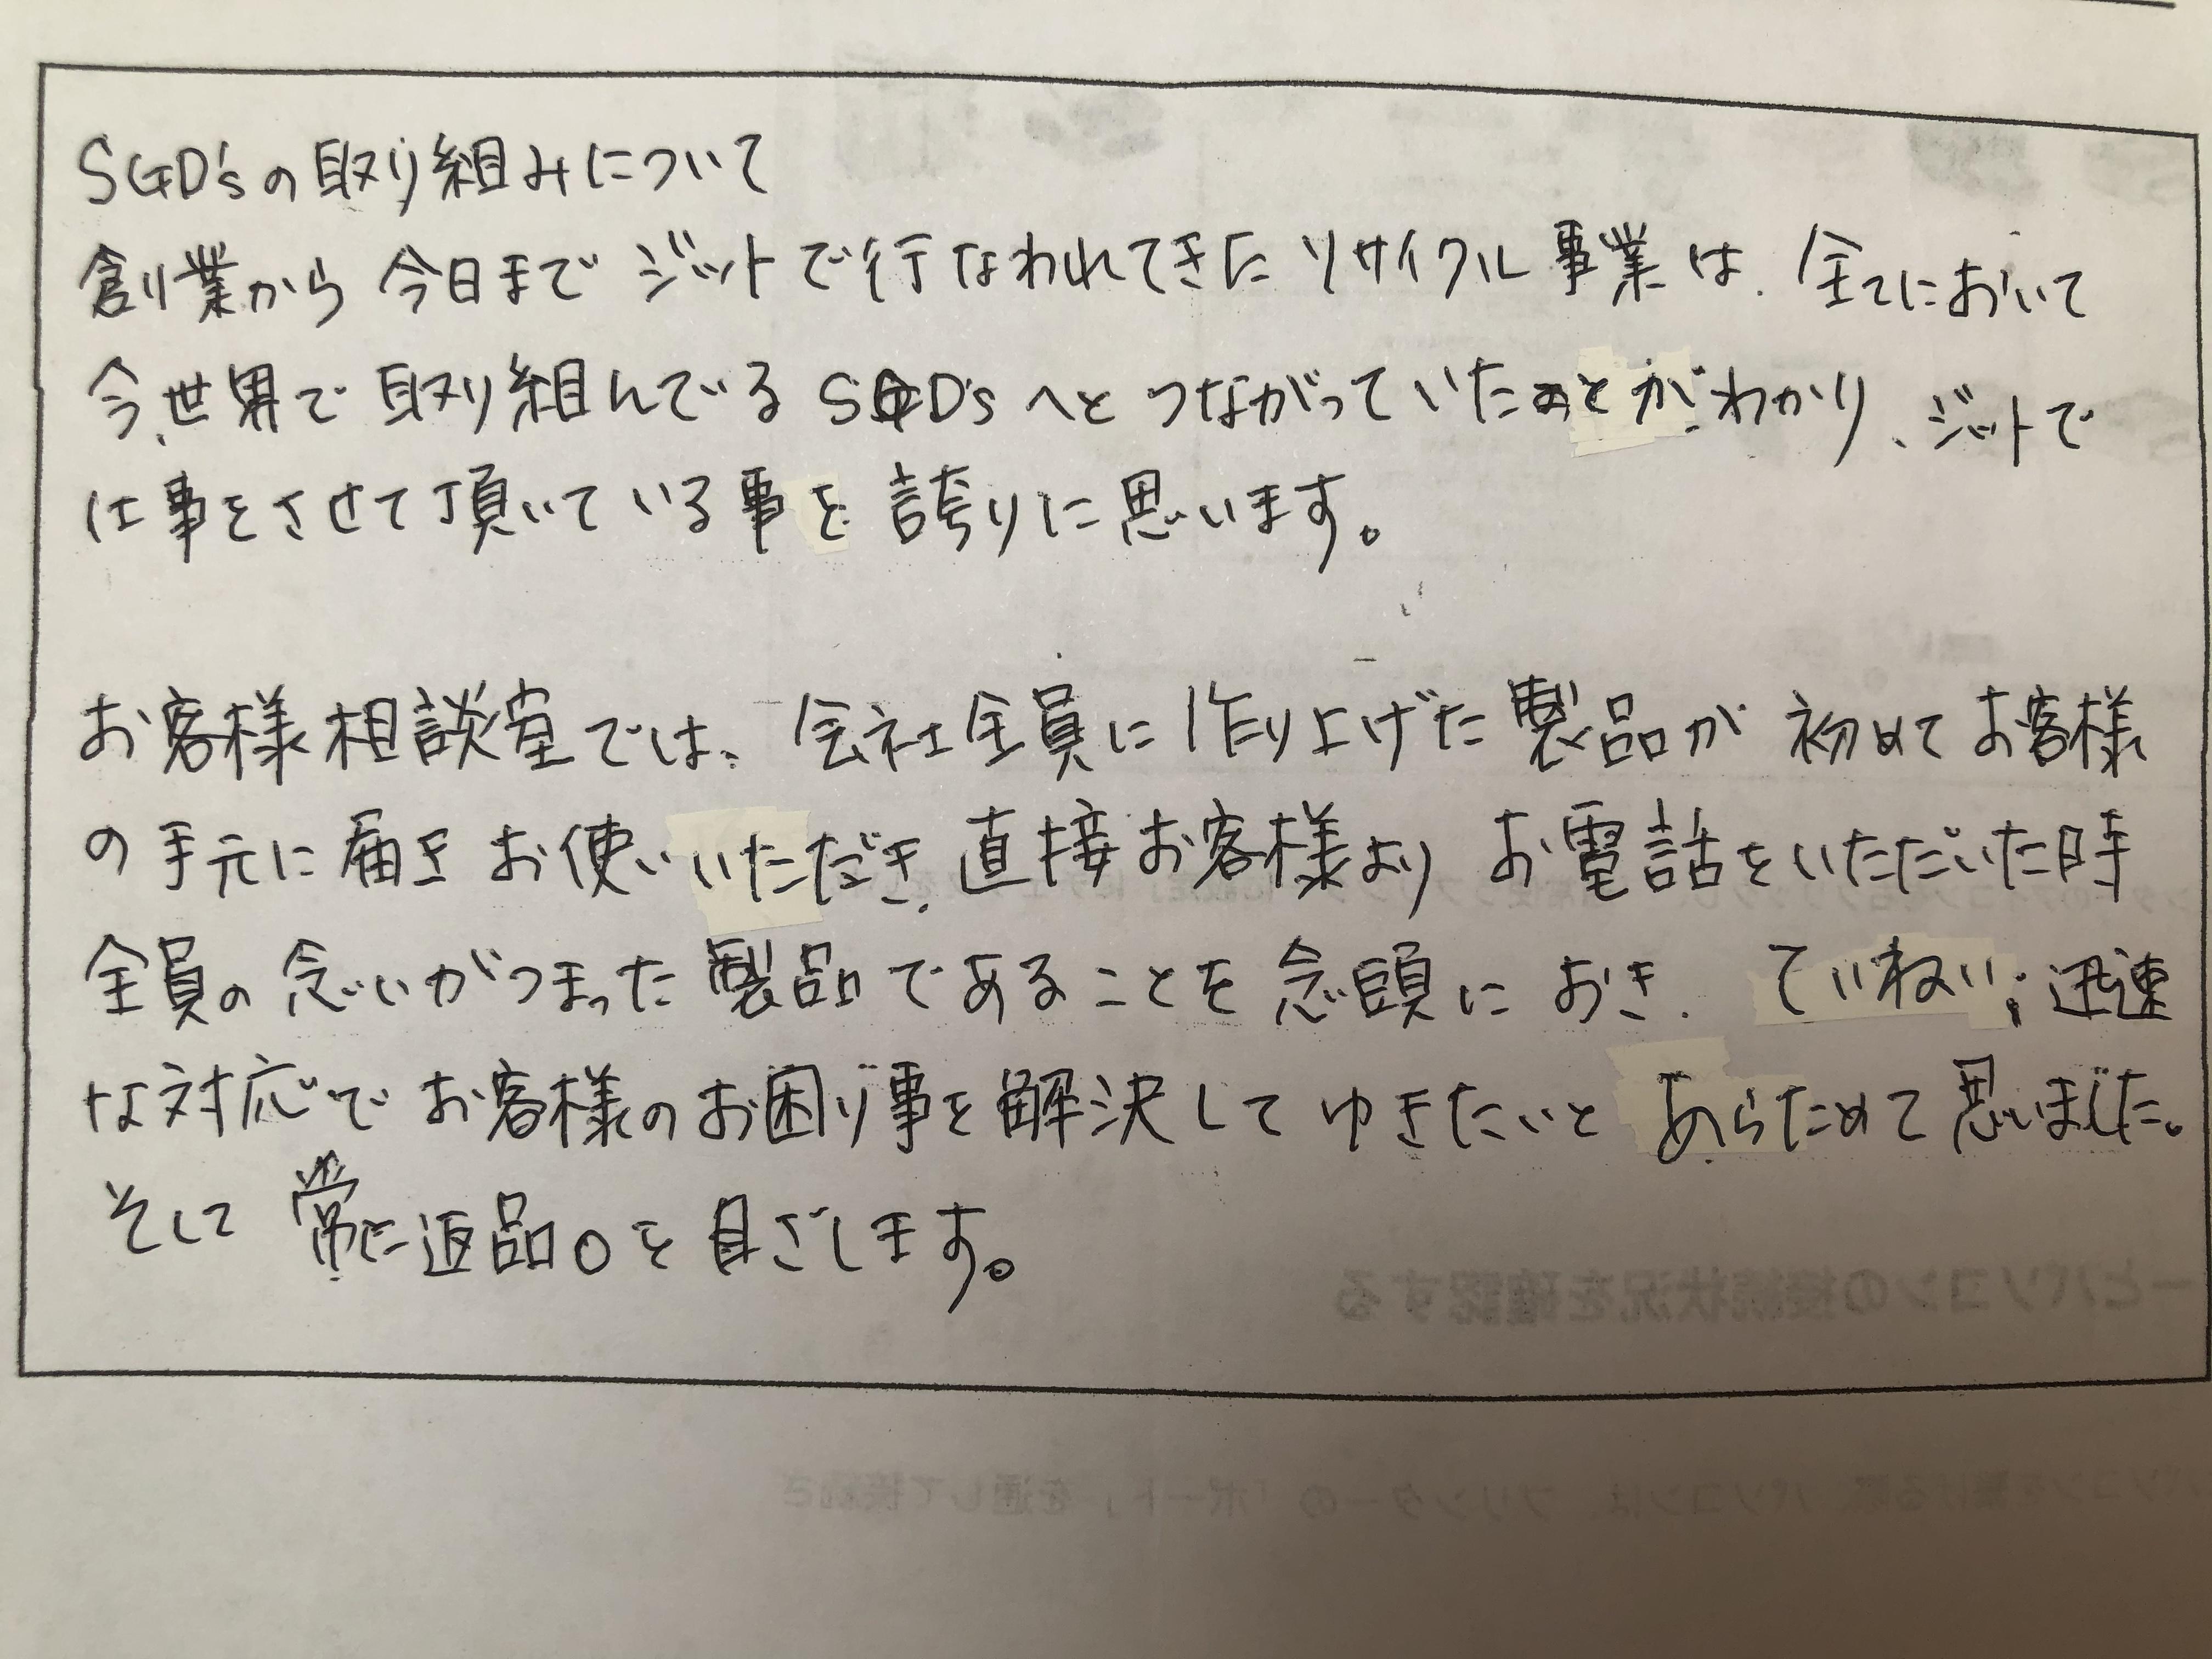 SGD'sの取り組みについて
創業から今日までジットで行なわれてきたリサイクル事業は、全てにおいて
今、世界で取り組んでいるSGD'sへとつながっていたことがわかり、ジットで
仕事をさせて頂いている事を誇りに思います。
お客様相談室では、会社全員に作り上げた製品が初めてお客様
の手元に届きお使いいただき、直接お客様よりお電話をいただいた時
全員の念いがつまった製品であることを念頭におき、ていねい、迅速
な対応でお客様のお困り事を解決してゆきたいとあらためて思いました。
そして常に返品0を目ざします。
ーとパソコンの接続状況を確認する